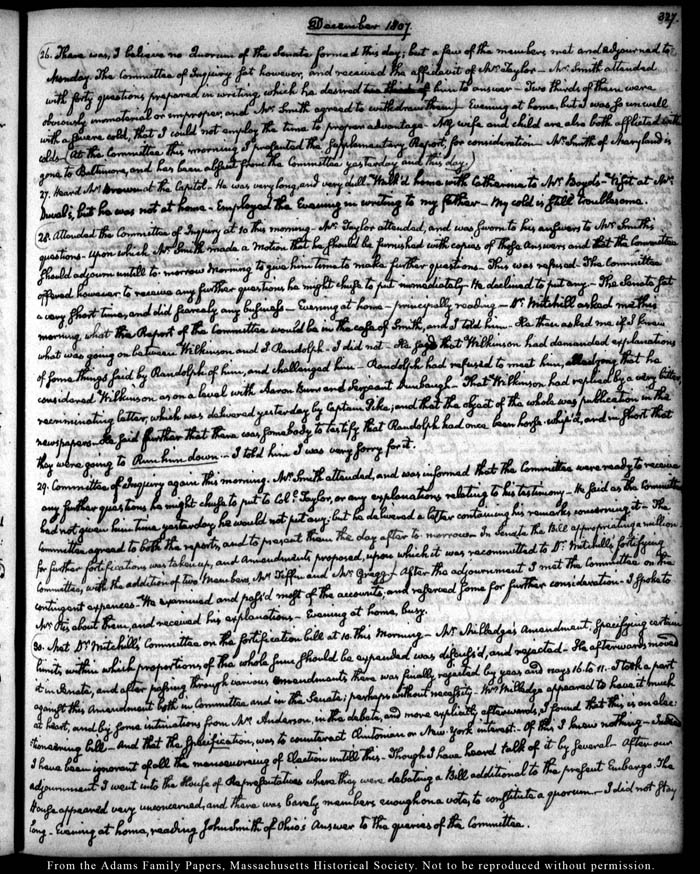 327.
December 1807.
26. There was, I believe no Quorum of the Senate formed this day; but a few of the members met and adjourned to
Monday. The Committee of Inquiry sat however, and received the affidavit of Mr Taylor — Mr Smith attended
with forty questions prepared in writing, which he desired him to answer — Two thirds of them were
obviously immaterial or improper, and Mr Smith agreed to withdraw them — Evening at home, but I was so unwell
with a severe cold, that I could not employ the time to proper advantage — My wife and child are also both afflicted with
colds — (At the Committee this morning I presented the supplementary Report, for consideration — Mr Smith of Maryland is
gone to Baltimore, and has been absent from the Committee yesterday and this day.)
27. Heard Mr Brown at the Capitol. He was very long, and very dull. Walk'd home with Catharine to Mr Boyd's — Visit at Mr
Duval's, but he was not at home. Employed the Evening in writing to my father — My cold is still troublesome.
28. Attended the Committee of Inquiry at 10 this morning — Mr Taylor attended, and was sworn to his answers to Mr Smith's
questions — Upon which Mr Smith made a motion that he should be furnished with copies of these Answers and that the Committee
should adjourn untill to-morrow morning to give him time to make further questions — This was refused — The Committee
offered however to receive any further questions he might chuse to put immediately — He declined to put any — The Senate sat
a very short time, and did scarcely any business — Evening at home — principally reading — Dr Mitchill asked me this
morning what the Report of the Committee would be in the case of Smith, and I told him — He then asked me if I knew
what was going on between Wilkinson and J. Randolph — I did not — He said that Wilkinson had demanded explanations
of some things said by Randolph of him, and challenged him — Randolph had refused to meet him, alledging that he
considered Wilkinson as on a level with Aaron Burr and Sergeant Dunbaugh — That Wilkinson had replied by a very bitter,
recriminating letter, which was delivered yesterday by Captain Pike; and that the object of the whole was publication in the
newspapers — He said further that there was somebody to testify that Randolph had once been horse-whip'd, and in short that
they were going to Run him down — I told him I was very sorry for it.
29. Committee of Inquiry again this morning. Mr Smith attended, and was informed that the Committee were ready to receive
any further questions he might chuse to put to Col. Taylor, or any explanations relating to his testimony — He said as the Committee
had not given him time yesterday he would not put any; but he delivered a letter containing his remarks concerning it — The
Committee agreed to both the reports, and to present them the day after to-morrow — In Senate the Bill appropriating a million
for further fortifications was taken up, and Amendments proposed, upon which it was recommitted to Dr. Mitchill's fortifying
Committee, with the addition of two Members, Mr Tiffin and Mr Gregg — After the adjournment I met the Committee on the
contingent expences — We examined and pass'd most of the accounts, and referred some for further consideration — I spoke to
Mr Otis about them, and received his explanations — Evening at home, busy.
30. Met Dr Mitchill's Committee on the fortification bill at 10. this Morning — Mr Milledge's Amendment, specifying certain
limits within which proportions of the whole sum should be expended was discuss'd, and rejected — He afterwards moved
it in Senate, and after passing through various amendments there was finally rejected by yeas and nays 16 to 11. I took a part
against this Amendment both in Committee and in the Senate; perhaps without necessity. Mr Milledge appeared to have it much
at heart, and by some intimations from Mr Anderson, in the debate, and more explicitly afterwards, I found that this is an elec-
tioneering bill — And that the specification, was to counteract Clintonian or New-York interest. Of this I knew nothing — Indeed
I have been ignorant of all the manoeuvring of Election untill this — Though I have heard talk of it by several — After our
adjournment I went into the House of Representatives where they were debating a Bill additional to the present Embargo. The
House appeared very unconcerned, and there was barely members enough on a vote, to constitute a quorum — I did not stay
long — Evening at home, reading John Smith of Ohio's Answer to the queries of the Committee.
From the Adams Family Papers, Massachusetts Historical Society. Not to be reproduced without permission.